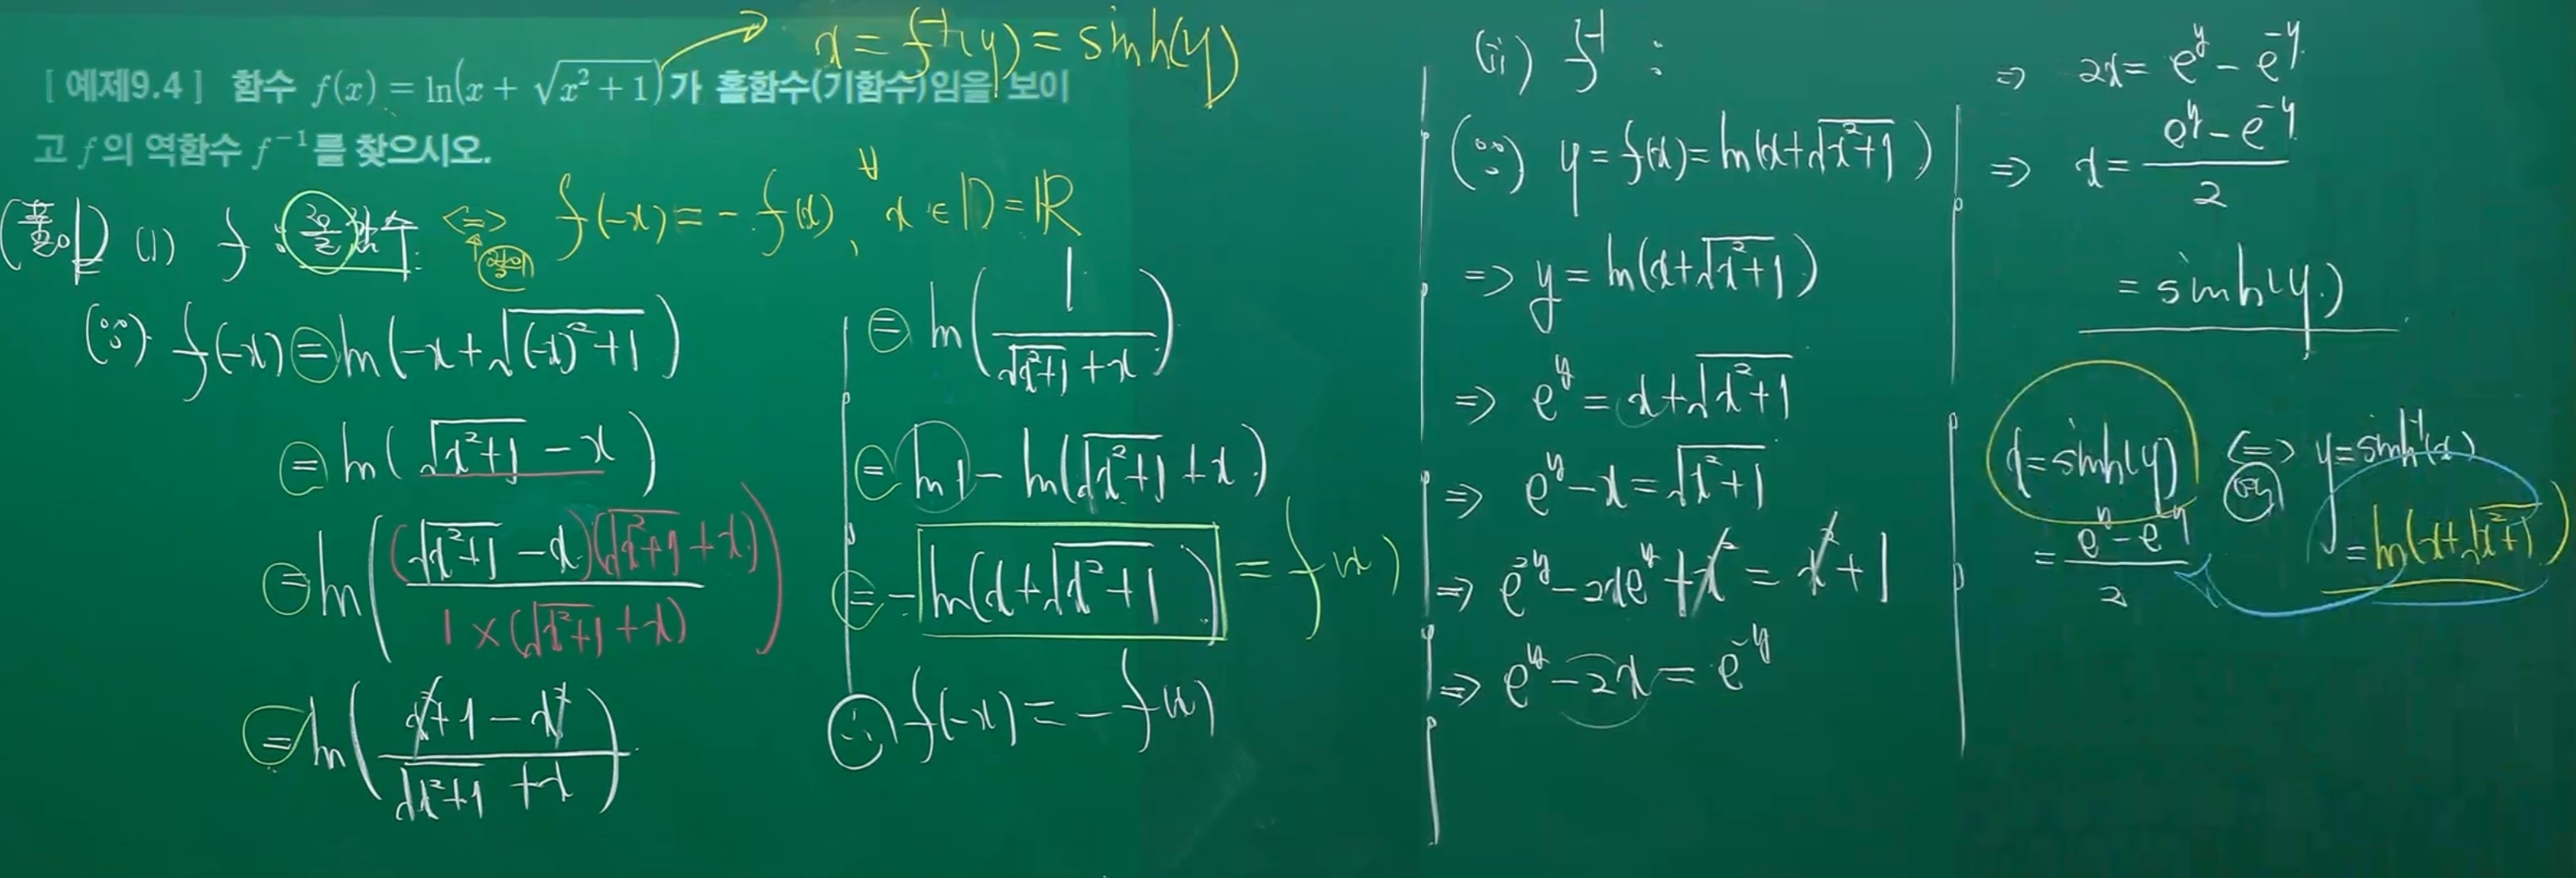 x = f⁻¹(y) = sinh(y)
[ 예제9.4 ] 함수 f(x) = ln(x + √(x² + 1))가 홀함수(기함수)임을 보이
고 f의 역함수 f⁻¹를 찾으시오.
(풀이) (i) f : 홀함수 ⇔ f(-x) = -f(x), ∀x ∈ D = ℝ
(∵) f(-x) = ln(-x + √((-x)² + 1))
= ln(√(x²+1) - x)
= ln((√(x²+1) - x)(√(x²+1) + x) / 1 × (√(x²+1) + x))
= ln((x²+1-x²) / (√(x²+1) + x))
= ln(1 / (√(x²+1) + x))
= ln1 - ln(√(x²+1) + x)
= -ln(x + √(x²+1)) = f(x)
∴ f(-x) = -f(x)
(ii) f⁻¹ :
(∵) y = f(x) = ln(x + √(x²+1))
⇒ y = ln(x + √(x²+1))
⇒ e^y = x + √(x²+1)
⇒ e^y - x = √(x²+1)
⇒ e^2y - 2xe^y + x² = x² + 1
⇒ e^y - 2x = e^-y
⇒ 2x = e^y - e^-y
⇒ x = (e^y - e^-y) / 2
= sinh(y)
x = sinh(y) ⇔ y = sinh⁻¹(x)
= (e^y - e^-y) / 2 = ln(x + √(x²+1))